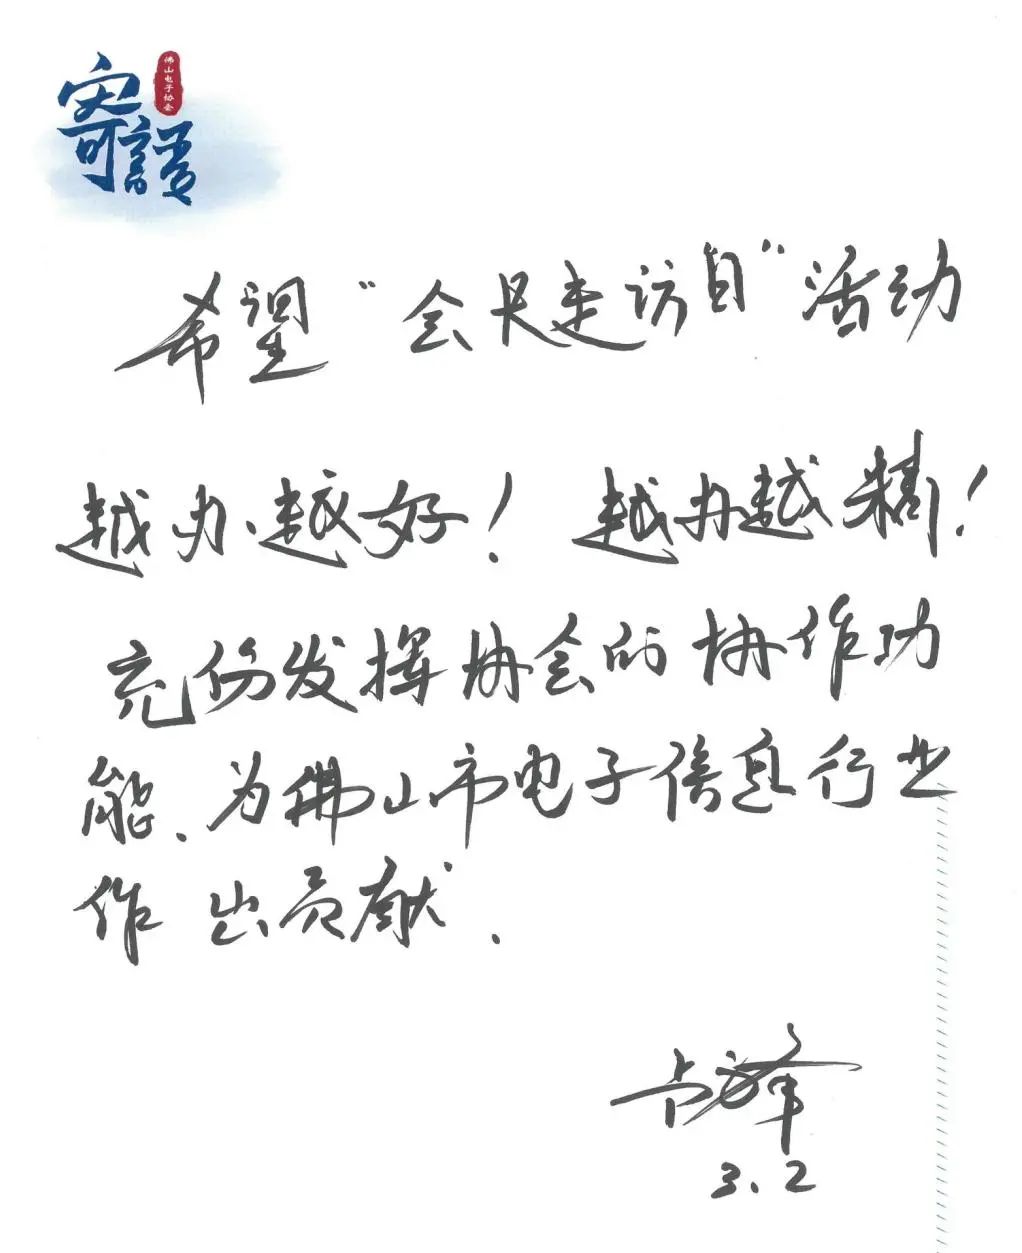 佛山电子协会
寄語
希望“会长走访日”活动
越办越好！越办越精！
充份发挥协会的协作功
能.为佛山市电子信息行业
作出贡献.
3.2